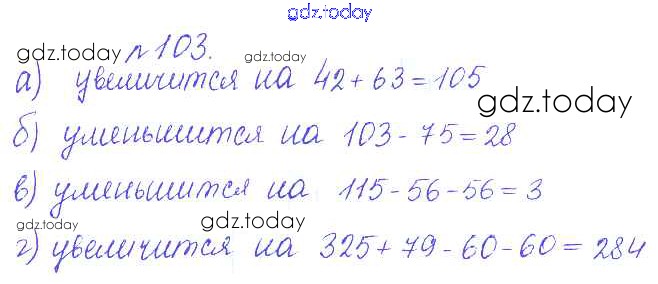 gdz.today
gdz.today №103. gdz.today
а) увеличится на 42+63=105
gdz.today
б) уменьшится на 103-75=28
в) уменьшится на 115-56-56=3
gdz.today gdz.today
г) увеличится на 325+79-60-60=284